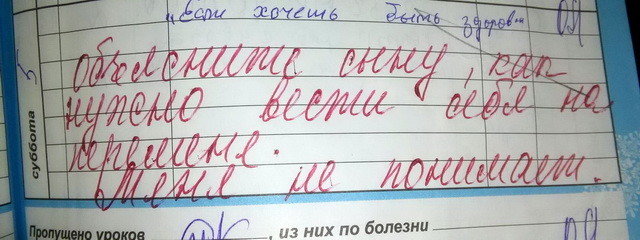 „если хочешь быть здоров" ОЯ
5
суббота
объясните сыну, как
нужно вести себя на
перемене.
Меня не понимает.
Пропущено уроков , из них по болезни